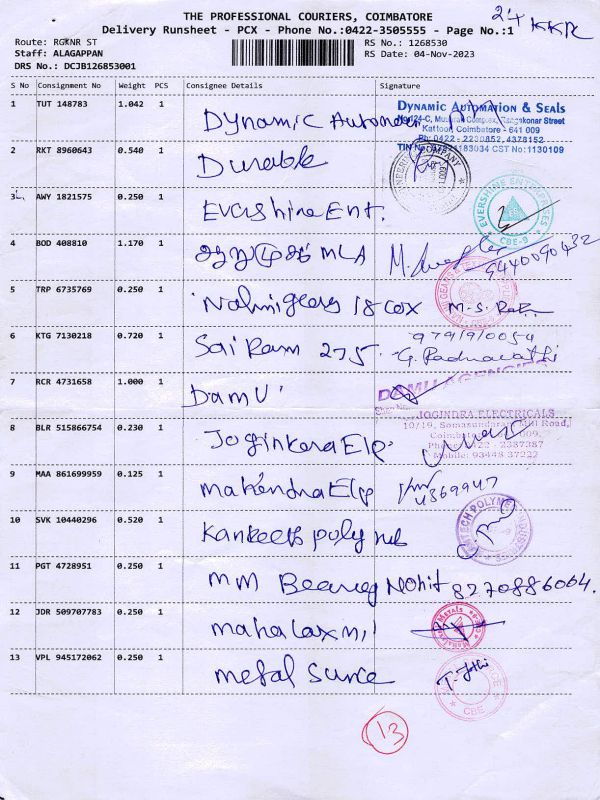 THE PROFESSIONAL COURIERS, COIMBATORE
24 KKR
Delivery Runsheet - PCX - Phone No.:0422-3505555 - Page No.:1
Route: RGKNR ST
RS No.: 1268530
Staff: ALAGAPPAN
RS Date: 04-Nov-2023
DRS No.: DCJB126853001
S No Consignment No Weight PCS Consignee Details Signature
1 TUT 148783 1.042 1 Dynamic
DYNAMIC AUTOMATION & SEALS
Kattoor, Coimbatore - 641 009
Ph: 0422 - 2230852, 4378152
CST No: 1130109
2 RKT 8960643 0.540 1 Durable
COMPANY
3 AWY 1821575 0.250 1 Evershine Ent.
EVERSHINE ENTERPRISES
CBE-9
4 BOD 408810 1.170 1 ஆறுமுகம் MLA
9440090432
5 TRP 6735769 0.250 1 18 Cox M.S.
6 KTG 7130218 0.720 1 Sai Ram 275
G. Padmavathi
7 RCR 4731658 1.000 1 Damu
DAMU AGENCIES
8 BLR 515866754 0.230 1
JOGINDRA ELECTRICALS
10/19, Somasundaram Mill Road,
Coimbatore - 641 009.
Phone: 0422 - 2387387
Mobile: 93448 37222
9 MAA 861699959 0.125 1 Mahendra Elp
4369947
10 SVK 10440296 0.520 1 poly
11 PGT 4728951 0.250 1 MM Bearing Mohit 8270886064.
12 JDR 509707783 0.250 1 Mahalaxmi
13 VPL 945172062 0.250 1 Metal Surce
T. Jothi
CBE
13